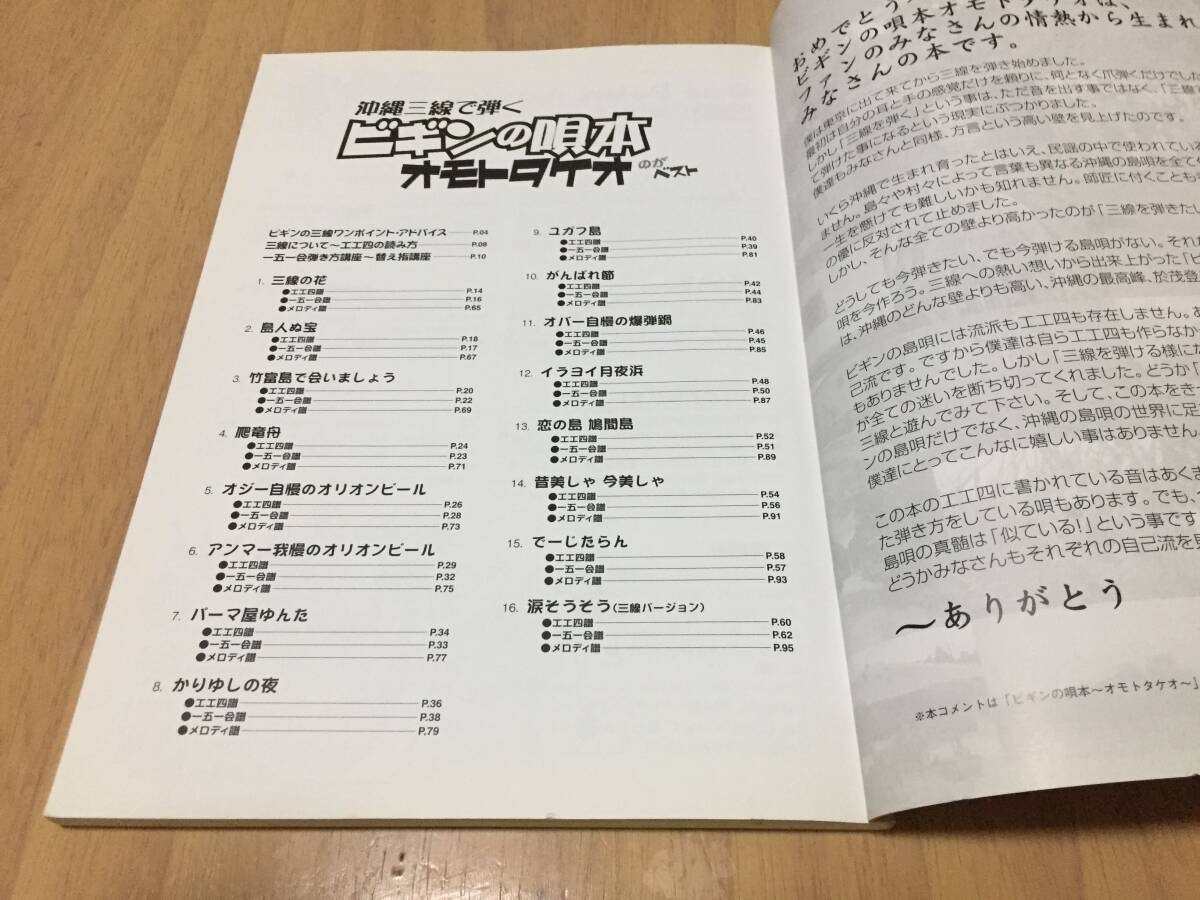 沖縄三線で弾く
ビギンの唄本
オモトタケオ のがベスト
ビギンの三線ワンポイント・アドバイス P.04
三線について〜工工四の読み方 P.08
一五一会弾き方講座〜替え指講座 P.10
1. 三線の花
●工工四譜 P.14
●一五一会譜 P.16
●メロディ譜 P.65
2. 島人ぬ宝
●工工四譜 P.18
●一五一会譜 P.17
●メロディ譜 P.67
3. 竹富島で会いましょう
●工工四譜 P.20
●一五一会譜 P.22
●メロディ譜 P.69
4. 爬竜舟
●工工四譜 P.24
●一五一会譜 P.23
●メロディ譜 P.71
5. オジー自慢のオリオンビール
●工工四譜 P.26
●一五一会譜 P.28
●メロディ譜 P.73
6. アンマー我慢のオリオンビール
●工工四譜 P.29
●一五一会譜 P.32
●メロディ譜 P.75
7. パーマ屋ゆんた
●工工四譜 P.34
●一五一会譜 P.33
●メロディ譜 P.77
8. かりゆしの夜
●工工四譜 P.36
●一五一会譜 P.38
●メロディ譜 P.79
9. ユガフ島
●工工四譜 P.40
●一五一会譜 P.39
●メロディ譜 P.81
10. がんばれ節
●工工四譜 P.42
●一五一会譜 P.44
●メロディ譜 P.83
11. オバー自慢の爆弾鍋
●工工四譜 P.46
●一五一会譜 P.45
●メロディ譜 P.85
12. イラヨイ月夜浜
●工工四譜 P.48
●一五一会譜 P.50
●メロディ譜 P.87
13. 恋の島 鳩間島
●工工四譜 P.52
●一五一会譜 P.51
●メロディ譜 P.89
14. 昔美しゃ 今美しゃ
●工工四譜 P.54
●一五一会譜 P.56
●メロディ譜 P.91
15. でーじたらん
●工工四譜 P.58
●一五一会譜 P.57
●メロディ譜 P.93
16. 涙そうそう(三線バージョン)
●工工四譜 P.60
●一五一会譜 P.62
●メロディ譜 P.95
おめでとう
ビギンの唄本オモトタケオは、
ファンのみなさんの情熱から生まれ
みなさんの本です。
僕は東京に出て来てから三線を弾き始めました。
最初は自分の耳と手の感覚だけを頼りに、何となく爪弾くだけでした
しかし「三線を弾く」という事は、ただ音を出す事ではなく、「三線
て弾けた事になるという現実にぶつかりました。
僕達もみなさんと同様、方言という高い壁を見上げたのです。
いくら沖縄で生まれ育ったとはいえ、民謡の中で使われている
ません。島々や村々によって言葉も異なる沖縄の島唄を全て
一生を懸けても難しいかも知れません。師匠に付くことも
の優に反対されて止めました。
しかし、そんな全ての壁より高かったのが「三線を弾きたい
どうしても今弾きたい、でも今弾ける島唄がない。それ
唄を今作ろう。三線への熱い想いから出来上がった「ビ
は、沖縄のどんな壁よりも高い、沖縄の最高峰、於茂登
ビギンの島唄には流派も工工四も存在しません。あ
己流です。ですから僕達は自ら工工四も作らなかっ
もありませんでした。しかし「三線を弾ける様にな
が全ての迷いを断ち切ってくれました。どうか「
三線と遊んでみて下さい。そして、この本をきっ
ンの島唄だけでなく、沖縄の島唄の世界に足
僕達にとってこんなに嬉しい事はありません。
この本の工工四に書かれている音はあくま
た弾き方をしている唄もあります。でも、
島唄の真髄は「似ている!」という事です
どうかみなさんもそれぞれの自己流を見
〜ありがとう
※本コメントは「ビギンの唄本〜オモトタケオ〜」